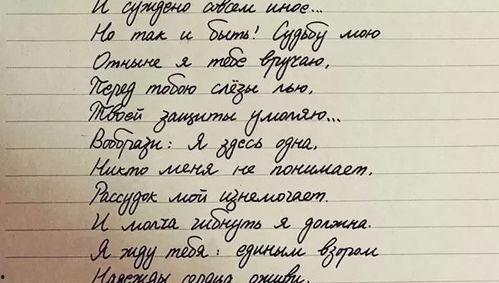 И суждено совсем иное...
Но так и быть! Судьбу мою
Отныне я тебе вручаю,
Перед тобою слёзы лью,
Твоей защиты умоляю...
Вообрази: Я здесь одна,
Никто меня не понимает,
Рассудок мой изнемогает.
И молча гибнуть я должна.
Я жду тебя: единым взором
Надежды сердца оживи,